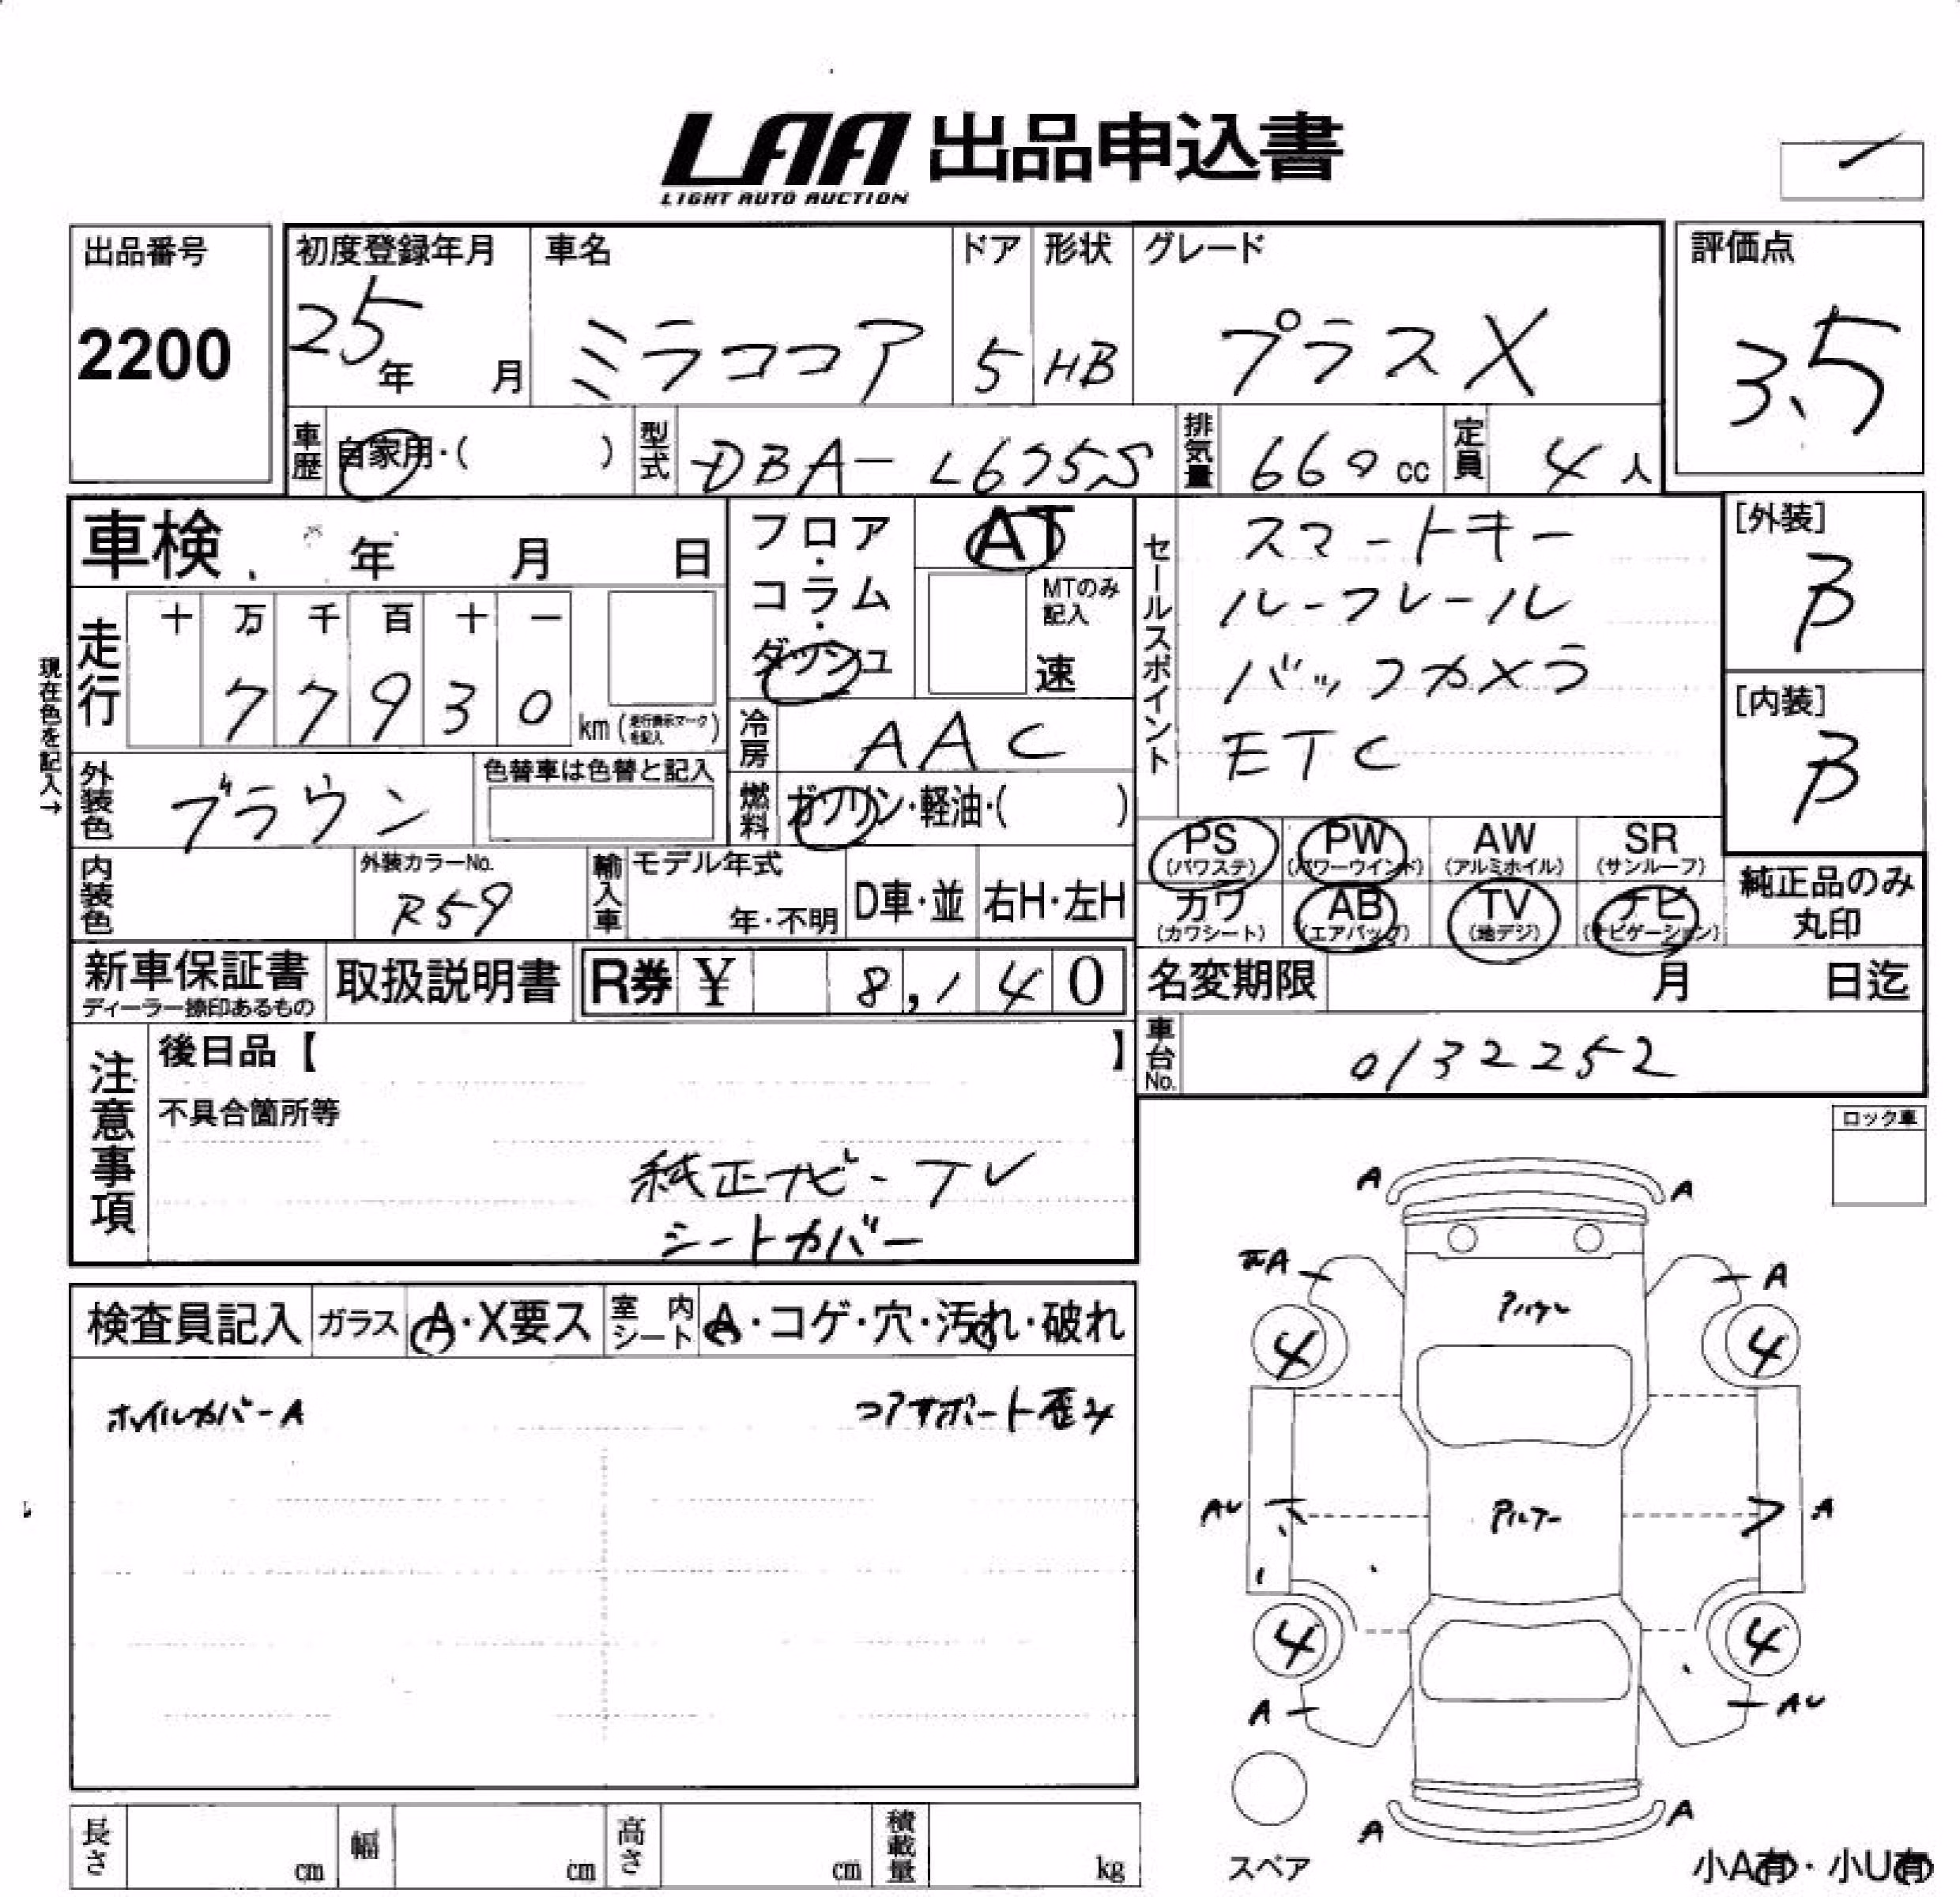 LAA 出品申込書
LIGHT AUTO AUCTION
出品番号
2200
初度登録年月
25年 月
車名
ミラココア
ドア
5
形状
HB
グレード
プラスX
評価点
3.5
車歴
自家用・( )
型式
DBA-L675S
排気量
660cc
定員
4人
車検 年 月 日
現在色を記入→
走行
十 万 千 百 十 一
7 7 9 3 0
km (走行表示マークを記入)
フロア・コラム・ダッシュ
AT
MTのみ記入
速
冷房
AAC
燃料
ガソリン・軽油・( )
セールスポイント
スマートキー
ルーフレール
バックカメラ
ETC
[外装]
B
[内装]
B
外装色
ブラウン
色替車は色替と記入
内装色
外装カラーNo.
R59
輸入車
モデル年式
年・不明
D車・並
右H・左H
PS
(パワステ)
PW
(パワーウインド)
AW
(アルミホイル)
SR
(サンルーフ)
カワ
(カワシート)
AB
(エアバッグ)
TV
(地デジ)
ナビ
(ナビゲーション)
純正品のみ
丸印
新車保証書
ディーラー捺印あるもの
取扱説明書
R券 ¥ 8,140
名変期限 月 日迄
車台No.
0132252
注意事項
後日品【 】
不具合箇所等
純正ナビ-TV
シートカバー
ロック車
検査員記入
ガラス
A・X要ス
室内シート
A・コゲ・穴・汚れ・破れ
ホイルカバーA
コアサポート歪み
A
A
A
A
4
4
AU
A
4
4
A
AU
A
A
スペア
小A有・小U有
長さ cm
幅 cm
高さ cm
積載量 kg